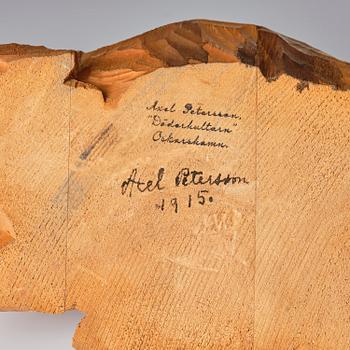 Axel Petersson.
"Döderhultarn"
Oskarshamn.
Axel Petersson
1915.